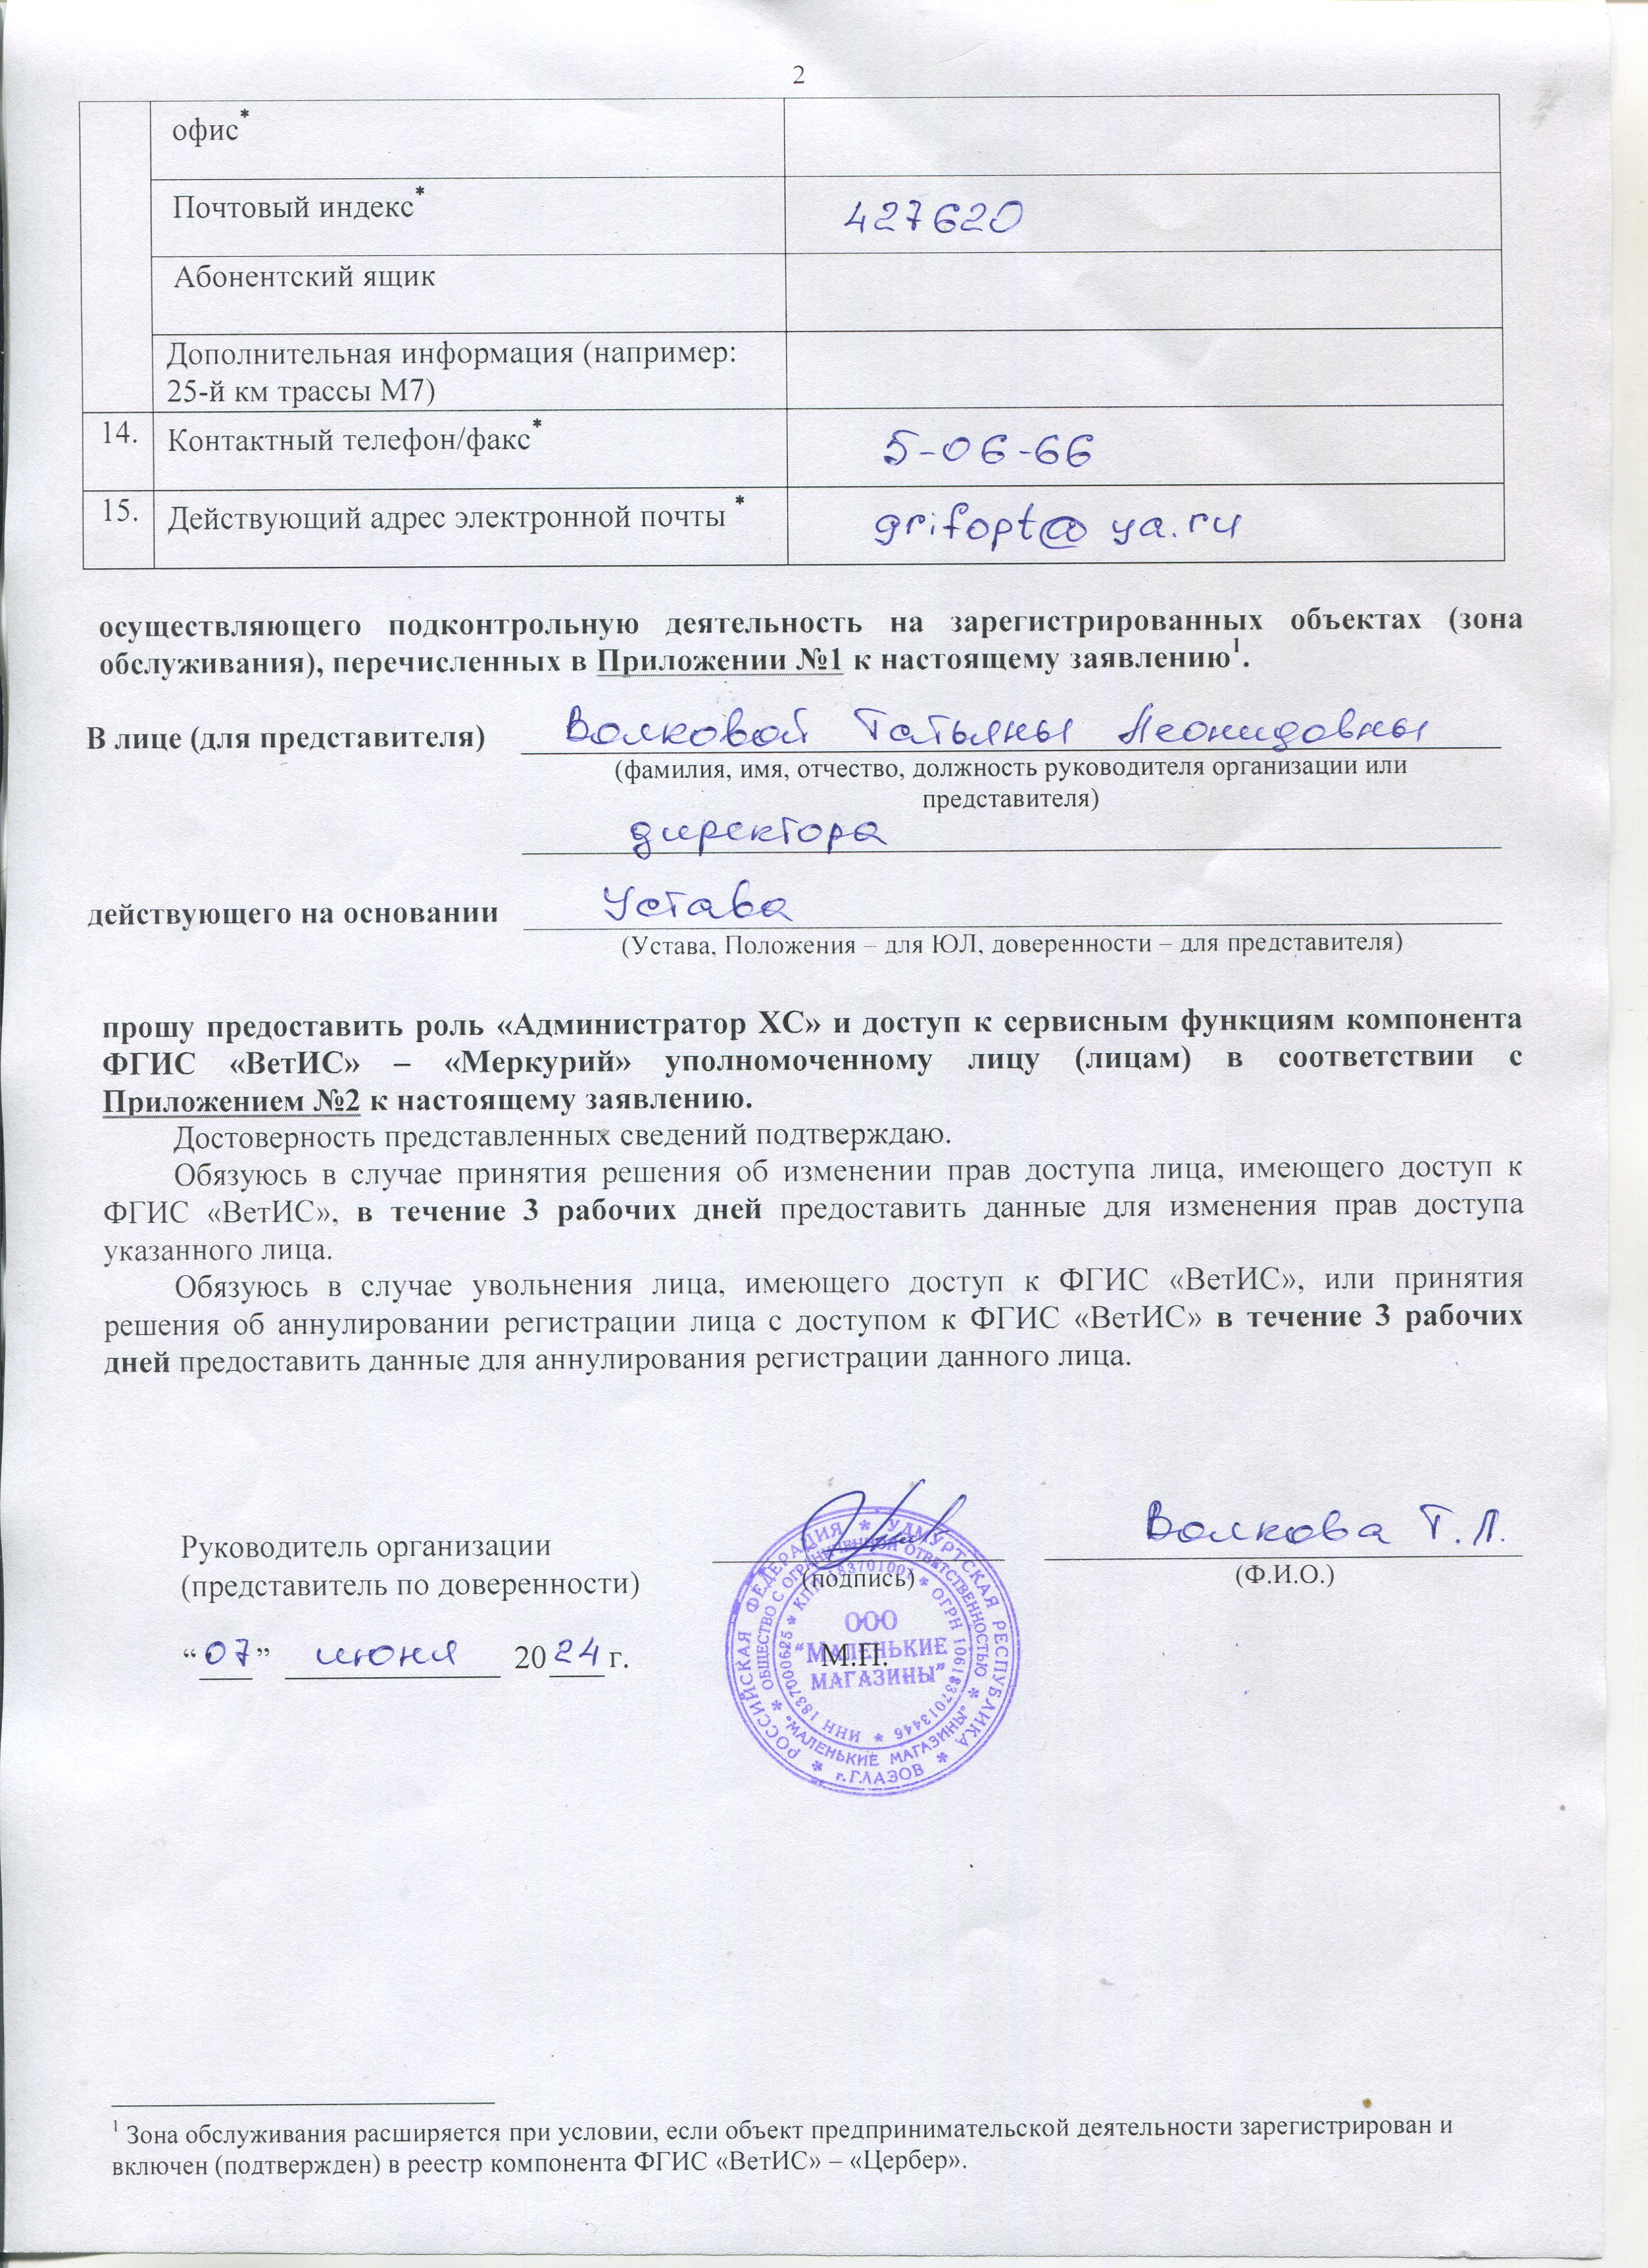 2
офис*
Почтовый индекс* 427620
Абонентский ящик
Дополнительная информация (например:
25-й км трассы М7)
14. Контактный телефон/факс* 5-06-66
15. Действующий адрес электронной почты * grifopt@ya.ru
осуществляющего подконтрольную деятельность на зарегистрированных объектах (зона
обслуживания), перечисленных в Приложении №1 к настоящему заявлению¹.
В лице (для представителя) Волковой Татьяны Леонидовны
(фамилия, имя, отчество, должность руководителя организации или
представителя)
директора
действующего на основании Устава
(Устава, Положения – для ЮЛ, доверенности – для представителя)
прошу предоставить роль «Администратор ХС» и доступ к сервисным функциям компонента
ФГИС «ВетИС» – «Меркурий» уполномоченному лицу (лицам) в соответствии с
Приложением №2 к настоящему заявлению.
Достоверность представленных сведений подтверждаю.
Обязуюсь в случае принятия решения об изменении прав доступа лица, имеющего доступ к
ФГИС «ВетИС», в течение 3 рабочих дней предоставить данные для изменения прав доступа
указанного лица.
Обязуюсь в случае увольнения лица, имеющего доступ к ФГИС «ВетИС», или принятия
решения об аннулировании регистрации лица с доступом к ФГИС «ВетИС» в течение 3 рабочих
дней предоставить данные для аннулирования регистрации данного лица.
Руководитель организации Волкова Т.Л.
(представитель по доверенности) (подпись) (Ф.И.О.)
“07” июня 2024 г. М.П.
РОССИЙСКАЯ ФЕДЕРАЦИЯ * УДМУРТСКАЯ РЕСПУБЛИКА * г.ГЛАЗОВ *
ОБЩЕСТВО С ОГРАНИЧЕННОЙ ОТВЕТСТВЕННОСТЬЮ * "МАЛЕНЬКИЕ МАГАЗИНЫ" *
ИНН 1837000625 * КПП 183701001 * ОГРН 1061837013446 *
ООО
"МАЛЕНЬКИЕ
МАГАЗИНЫ"
¹ Зона обслуживания расширяется при условии, если объект предпринимательской деятельности зарегистрирован и
включен (подтвержден) в реестр компонента ФГИС «ВетИС» – «Цербер».